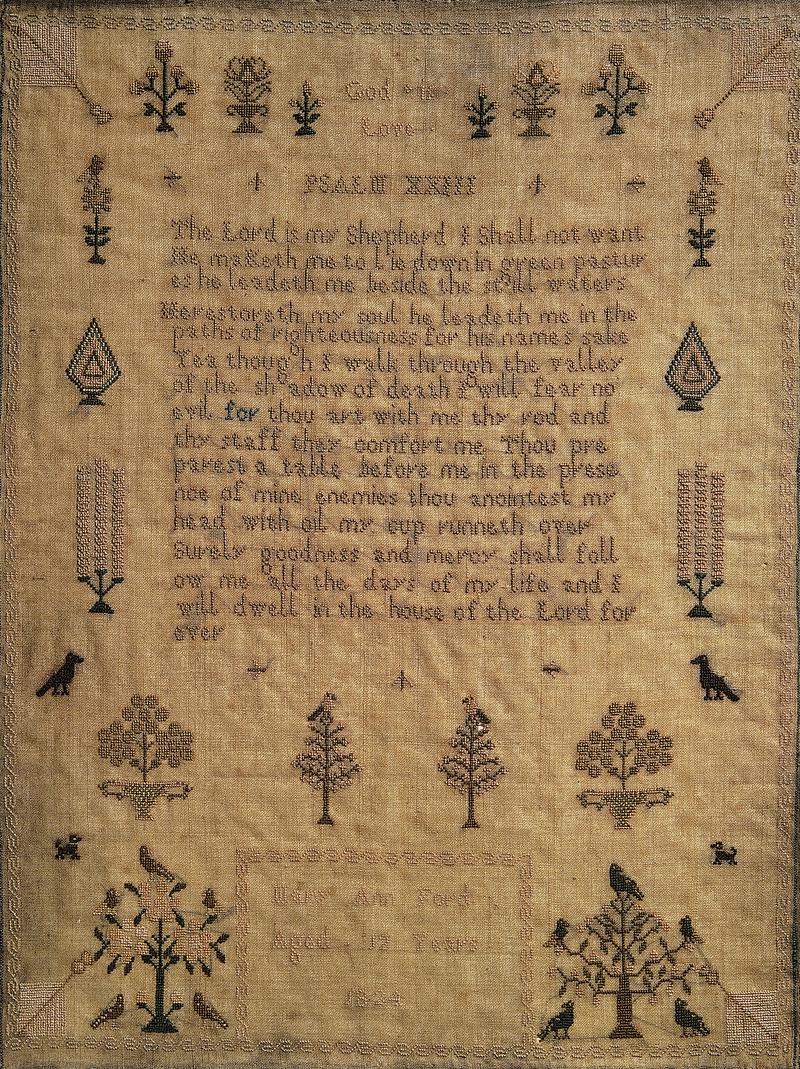 God is
Love
PSALM XXIII
The Lord is my Shepherd I Shall not want
He maketh me to lie down in green pastur
es he leadeth me beside the still waters
He restoreth my soul he leadeth me in the
paths of righteousness for his names sake
Yea though I walk through the valley
of the shadow of death I will fear no
evil for thou art with me thy rod and
thy staff they comfort me Thou pre
parest a table before me in the prese
nce of mine enemies thou anointest my
head with oil my cup runneth over
Surely goodness and mercy shall foll
ow me all the days of my life and I
will dwell in the house of the Lord for
ever
Mary Ann Ford
Aged 12 Years
1824